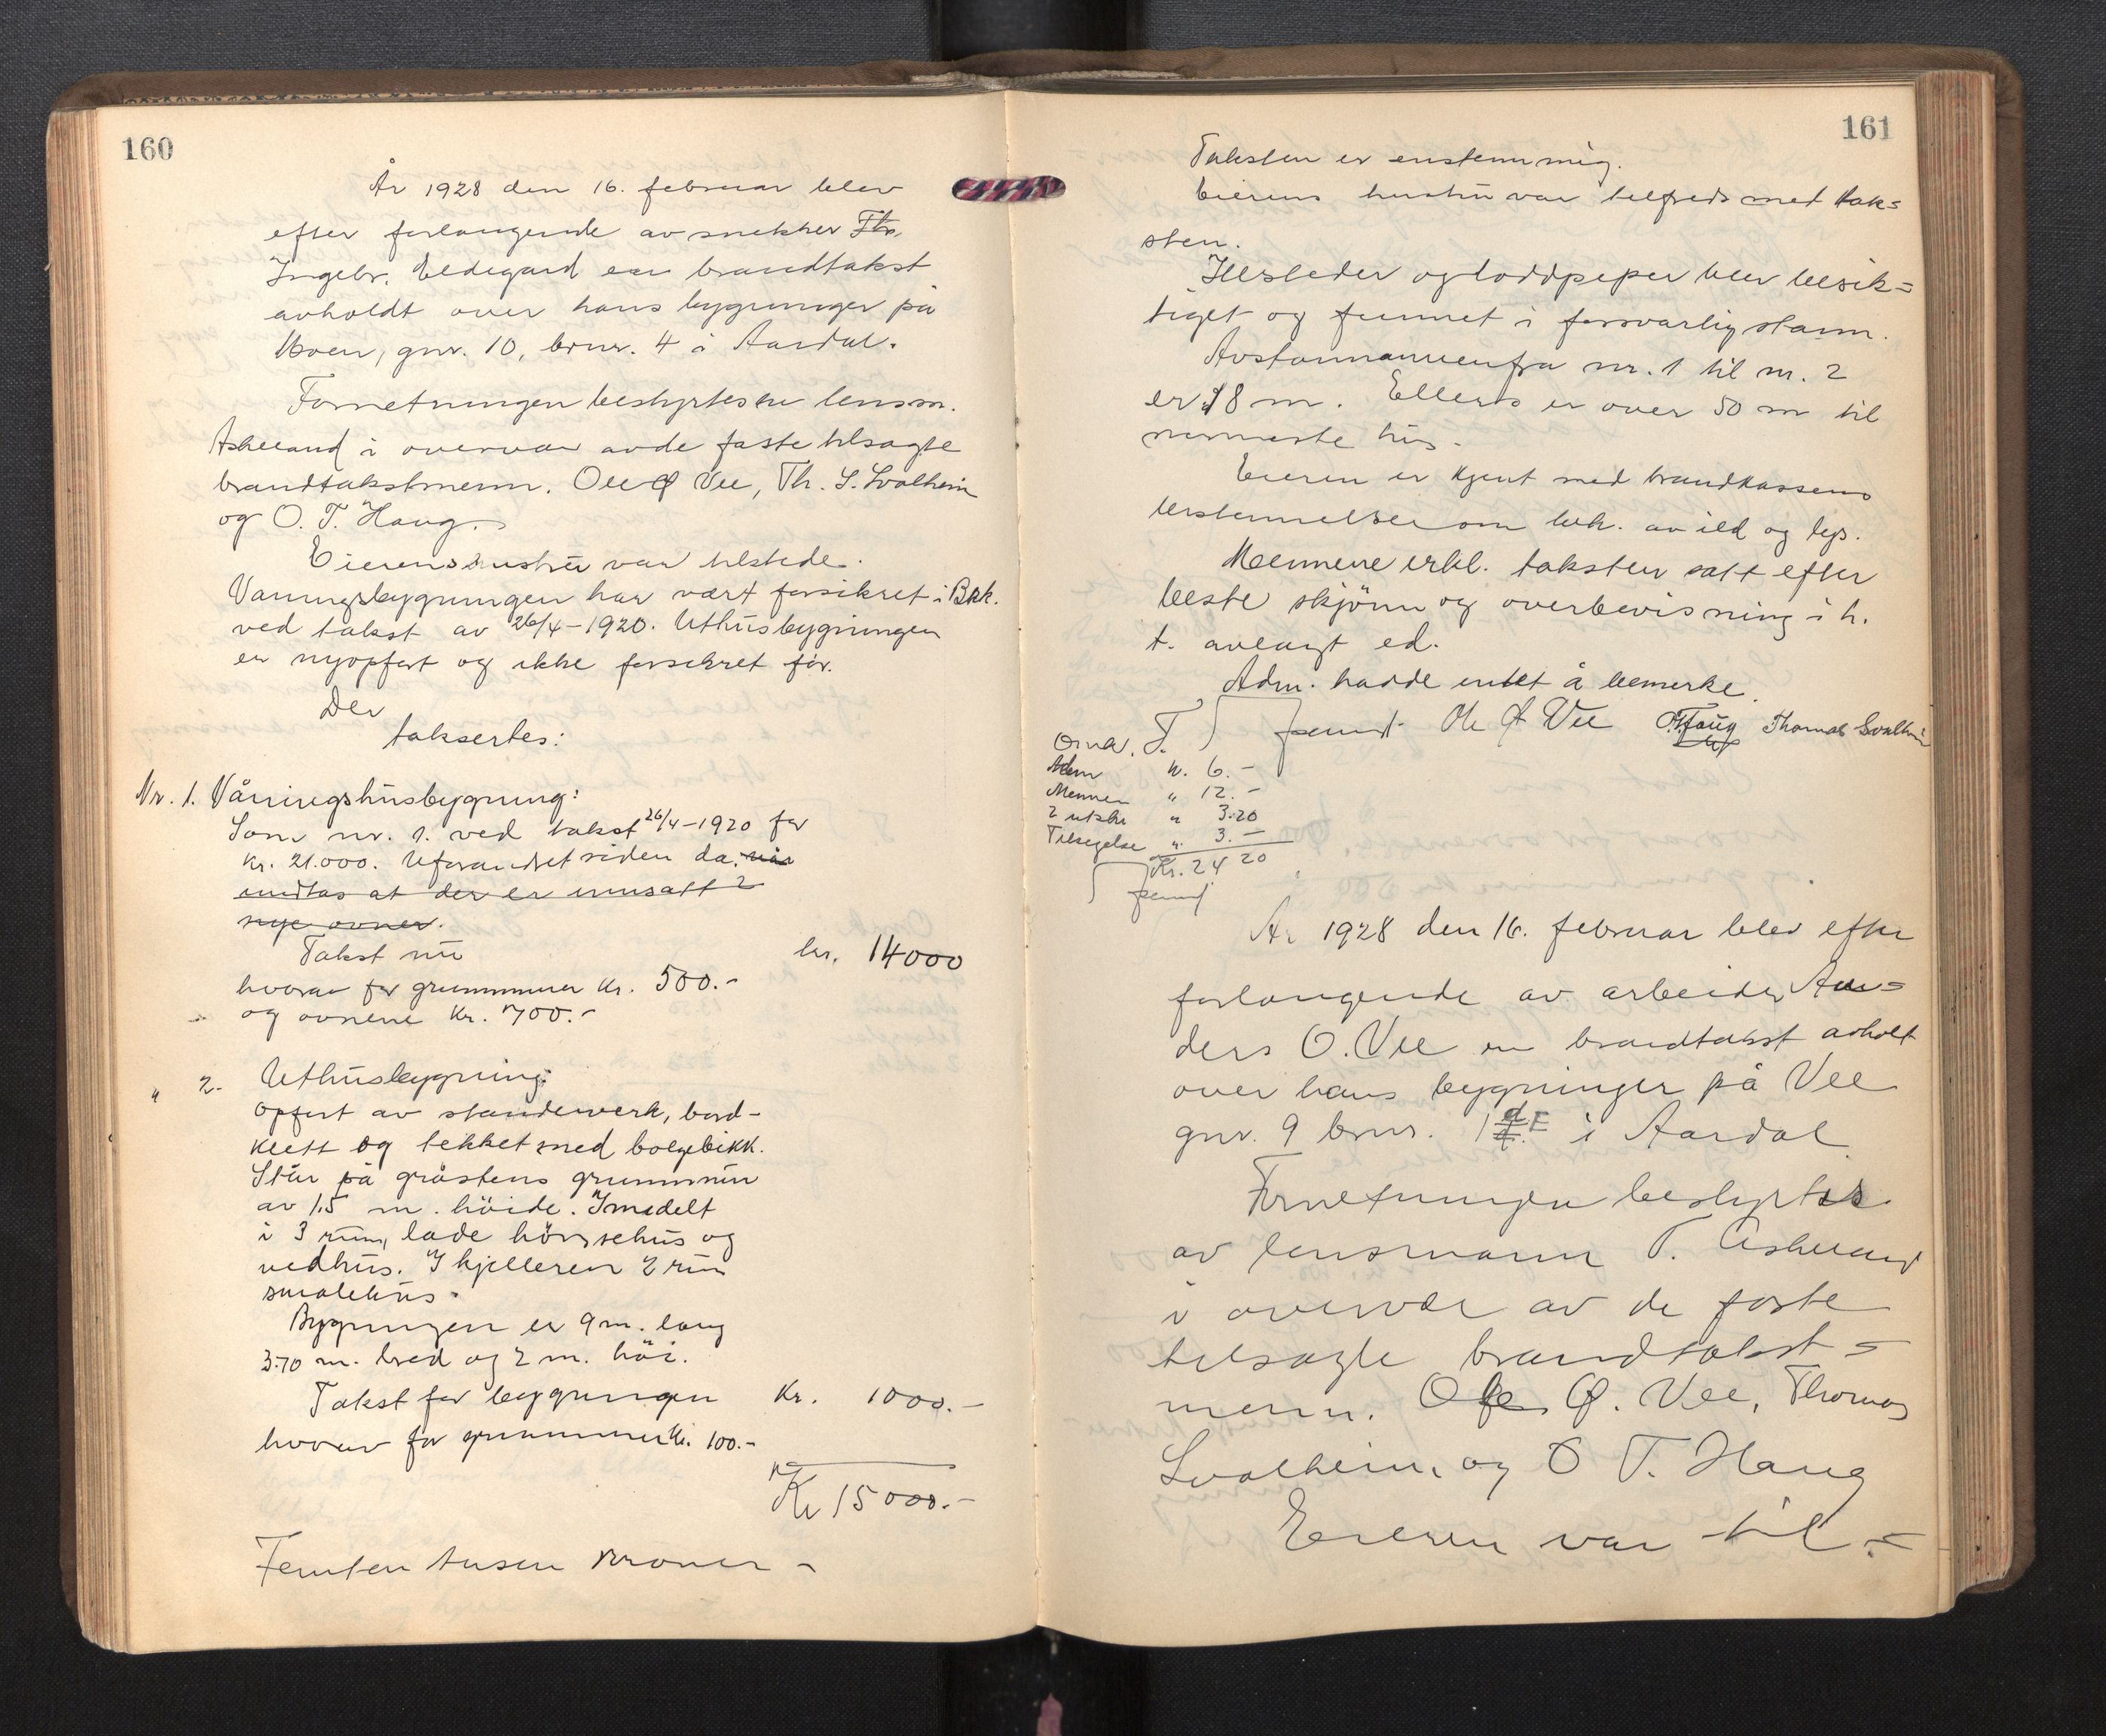 160
År 1928 den 16. februar blev
efter forlangende av snekker Th.
Ingebr. Eldegard en brandtakst
avholdt over hans bygninger på
Moen, gnr. 10, brnr. 4 i Aardal.
Forretningen bestyrtes av lensm.
Askeland i overvær av de faste tilsagte
brandtakstmenn. Ole Ø Vee, Th. S. Svalheim
og O. T. Haug.
Eierens hustru var tilstede.
Våningsbygningen har vært forsikret i Bkk.
ved takst av 26/4-1920. Uthusbygningen
er nyopført og ikke forsikret før.
Der
taksertes:
Nr. 1. Våningshusbygning:
Som nr. 1. ved takst 26/4-1920 for
kr. 21.000. Uforandret siden da. når
undtas at der er innsatt 2
nye ovner.
Takst nu kr. 14000
hvorav for grunnmuren kr. 500.-
og ovnene kr. 700.-
" 2. Uthusbygning:
opført av standerverk, bord-
klett og tekket med bølgeblikk.
Står på gråstens grunnmur
av 1.5 m. höide. Innredelt
i 3 rum, lade hönsehus og
vedhus. I kjelleren 2 rum
smalehus.
Bygningen er 9 m. lang
3.70 m. bred og 2 m. höi.
Takst for bygningen Kr. 1000.-
hvorav for grunnmuren kr. 100.-
Kr 15000.-
Femten tusen kroner -
161
Taksten er enstemmig.
Eierens hustru var tilfreds med tak=
sten.
Ildsteder og loddpiper blev besik=
tiget og funnet i forsvarlig stann.
Avstannen fra nr. 1 til nr. 2
er 18 m. Ellers er over 50 m til
nermeste hus.
Eieren er kjent med brandkassens
bestemmelser om beh. av ild og lys.
Mennene erkl. taksten satt efter
beste skjönn og overbevisning i h.
t. avlagt ed.
Adm. hadde intet å bemerke.
Ole Ø Vee O.T. Haug Thomas Svalheim
Adm k. 6.-
Mennen " 12.-
2 utskr " 3.20
Tilsigelse " 3.-
Kr. 24 20
År 1928 den 16. februar blev efter
forlangende av arbeider An=
ders O. Vee en brandtakst avholt
over hans bygninger på Vee
gnr. 9 brnr. 1 d E i Aardal
Forretningen bestyrtes
av lensmann T. Askeland
i overvær av de faste
tilsagte brandtakst=
menn. Ole Ø. Vee, Thomas
Svalheim, og O T. Haug
Eieren var til=